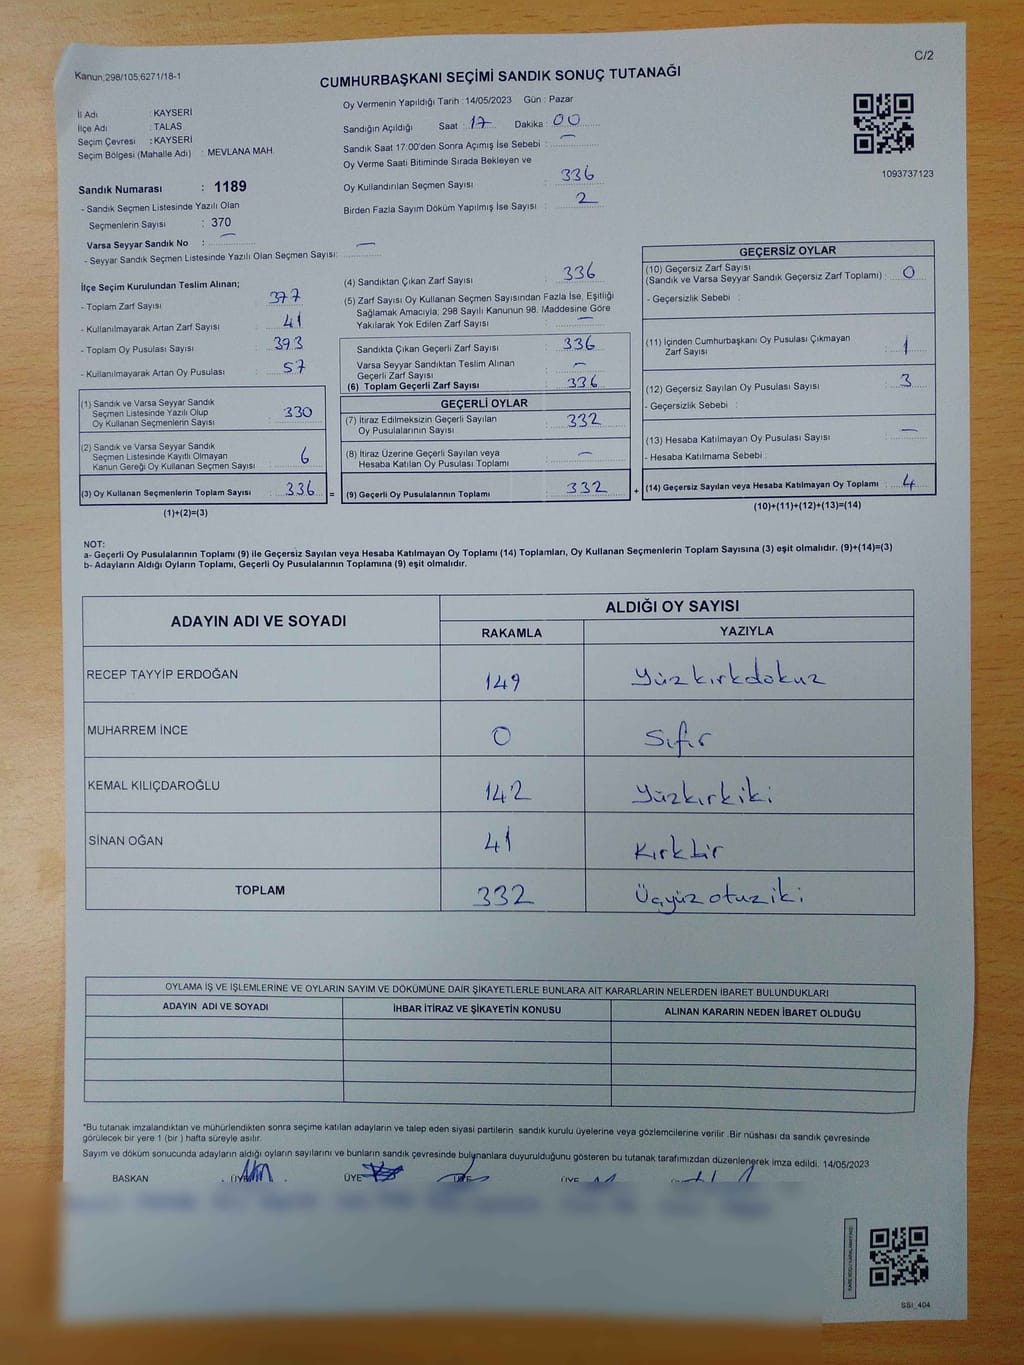 Kanun;298/105;6271/18-1
C/2
CUMHURBAŞKANI SEÇİMİ SANDIK SONUÇ TUTANAĞI
İl Adı : KAYSERİ
İlçe Adı : TALAS
Seçim Çevresi : KAYSERİ
Seçim Bölgesi (Mahalle Adı) : MEVLANA MAH.
Sandık Numarası : 1189
- Sandık Seçmen Listesinde Yazılı Olan
Seçmenlerin Sayısı : 370
Varsa Seyyar Sandık No : —
- Seyyar Sandık Seçmen Listesinde Yazılı Olan Seçmen Sayısı: —
Oy Vermenin Yapıldığı Tarih : 14/05/2023 Gün : Pazar
Sandığın Açıldığı Saat : 17 Dakika : 00
Sandık Saat 17:00'den Sonra Açımış İse Sebebi : —
Oy Verme Saati Bitiminde Sırada Bekleyen ve
Oy Kullandırılan Seçmen Sayısı : 336
Birden Fazla Sayım Döküm Yapılmış İse Sayısı : 2
1093737123
İlçe Seçim Kurulundan Teslim Alınan;
- Toplam Zarf Sayısı : 377
- Kullanılmayarak Artan Zarf Sayısı : 41
- Toplam Oy Pusulası Sayısı : 393
- Kullanılmayarak Artan Oy Pusulası : 57
(1) Sandık ve Varsa Seyyar Sandık
Seçmen Listesinde Yazılı Olup
Oy Kullanan Seçmenlerin Sayısı : 330
(2) Sandık ve Varsa Seyyar Sandık
Seçmen Listesinde Kayıtlı Olmayan
Kanun Gereği Oy Kullanan Seçmen Sayısı : 6
(3) Oy Kullanan Seçmenlerin Toplam Sayısı : 336 =
(1)+(2)=(3)
(4) Sandıktan Çıkan Zarf Sayısı : 336
(5) Zarf Sayısı Oy Kullanan Seçmen Sayısından Fazla İse, Eşitliği
Sağlamak Amacıyla; 298 Sayılı Kanunun 98. Maddesine Göre
Yakılarak Yok Edilen Zarf Sayısı : —
Sandıkta Çıkan Geçerli Zarf Sayısı : 336
Varsa Seyyar Sandıktan Teslim Alınan
Geçerli Zarf Sayısı : —
(6) Toplam Geçerli Zarf Sayısı : 336
GEÇERLİ OYLAR
(7) İtiraz Edilmeksizin Geçerli Sayılan
Oy Pusulalarının Sayısı : 332
(8) İtiraz Üzerine Geçerli Sayılan veya
Hesaba Katılan Oy Pusulası Toplamı : —
(9) Geçerli Oy Pusulalarının Toplamı : 332 +
GEÇERSİZ OYLAR
(10) Geçersiz Zarf Sayısı
(Sandık ve Varsa Seyyar Sandık Geçersiz Zarf Toplamı) : 0
- Geçersizlik Sebebi :
(11) İçinden Cumhurbaşkanı Oy Pusulası Çıkmayan
Zarf Sayısı : 1
(12) Geçersiz Sayılan Oy Pusulası Sayısı : 3
- Geçersizlik Sebebi :
(13) Hesaba Katılmayan Oy Pusulası Sayısı : —
- Hesaba Katılmama Sebebi :
(14) Geçersiz Sayılan veya Hesaba Katılmayan Oy Toplamı : 4
(10)+(11)+(12)+(13)=(14)
NOT:
a- Geçerli Oy Pusulalarının Toplamı (9) ile Geçersiz Sayılan veya Hesaba Katılmayan Oy Toplamı (14) Toplamları, Oy Kullanan Seçmenlerin Toplam Sayısına (3) eşit olmalıdır. (9)+(14)=(3)
b- Adayların Aldığı Oyların Toplamı, Geçerli Oy Pusulalarının Toplamına (9) eşit olmalıdır.
ADAYIN ADI VE SOYADI ALDIĞI OY SAYISI
RAKAMLA YAZIYLA
RECEP TAYYİP ERDOĞAN 149 Yüzkırkdokuz
MUHARREM İNCE 0 Sıfır
KEMAL KILIÇDAROĞLU 142 Yüzkırkiki
SİNAN OĞAN 41 Kırkbir
TOPLAM 332 Üçyüzotuziki
OYLAMA İŞ VE İŞLEMLERİNE VE OYLARIN SAYIM VE DÖKÜMÜNE DAİR ŞİKAYETLERLE BUNLARA AİT KARARLARIN NELERDEN İBARET BULUNDUKLARI
ADAYIN ADI VE SOYADI İHBAR İTİRAZ VE ŞİKAYETİN KONUSU ALINAN KARARIN NEDEN İBARET OLDUĞU
*Bu tutanak imzalandıktan ve mühürlendikten sonra seçime katılan adayların ve talep eden siyasi partilerin sandık kurulu üyelerine veya gözlemcilerine verilir .Bir nüshası da sandık çevresinde
görülecek bir yere 1 (bir ) hafta süreyle asılır.
Sayım ve döküm sonucunda adayların aldığı oyların sayılarını ve bunların sandık çevresinde bulunanlara duyurulduğunu gösteren bu tutanak tarafımızdan düzenlenerek imza edildi. 14/05/2023
BAŞKAN ÜYE ÜYE ÜYE ÜYE
SSI_404